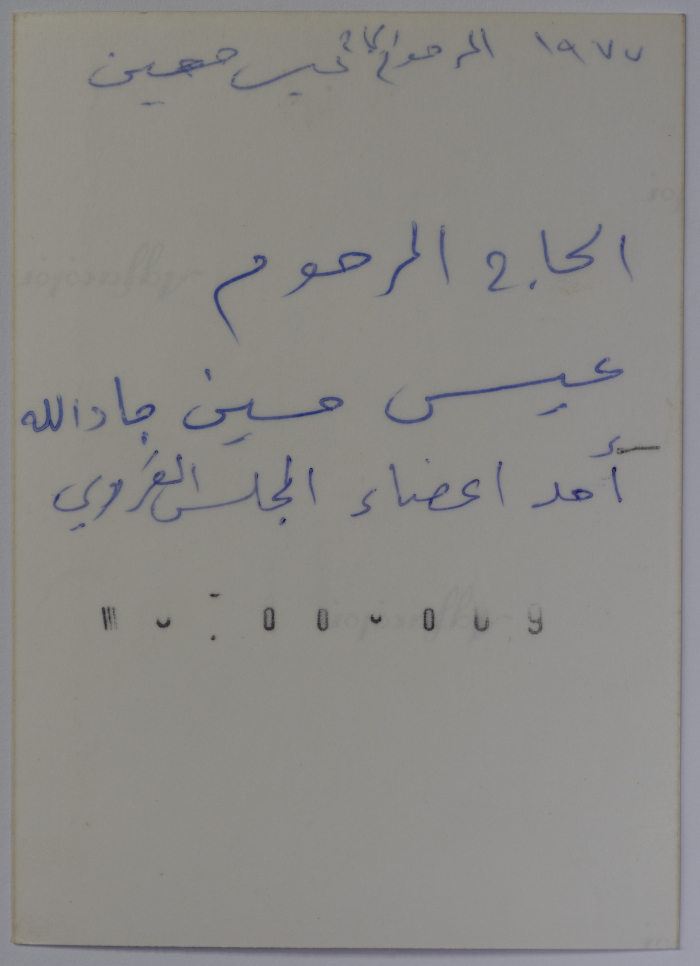 ١٩٧٧ المرحوم الحاج عيسى حسين
الحاج المرحوم
عيسى حسين جاد الله
أحد اعضاء المجلس القروي
00 009